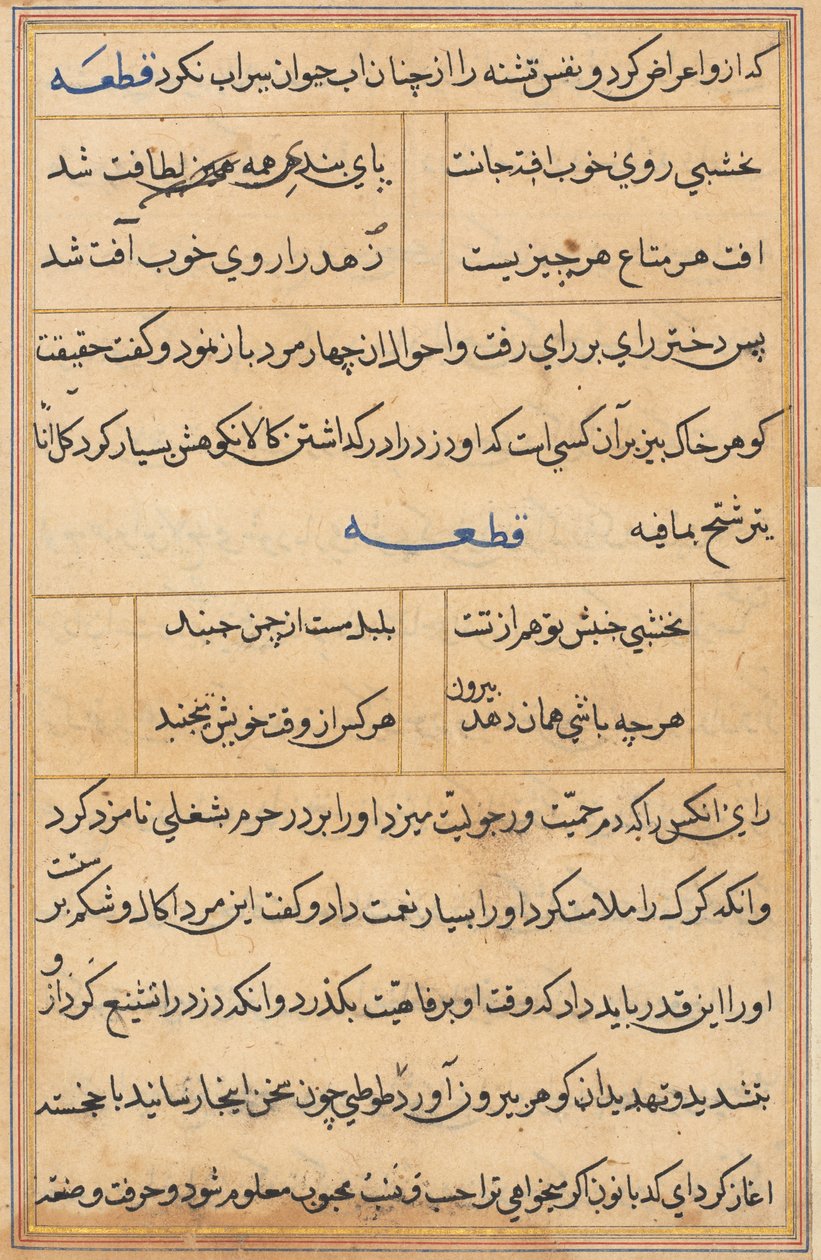 که ازو اعراض کرد و نفس تشنه را از چنان اب حیوان سیراب نکرد قطعه
نخشبي روي خوب افت جانت
پاي بند همه لطافت شد
افت هر متاع هر چیزیست
زهد را روي خوب آفت شد
پس دختر راي بر راي رفت و احوال ان چهار مرد باز نمود و کفت حقیقت
کوهر خاک بیز بر آن کسي است که او دزد را در کداشتن کالا نکوهش بسیار کرد کل انا
یترشّح بما فیه
قطعه
نخشبي جنبش تو هم از تست
بلبل مست از چمن جنبد
هر چه باشي همان دهد بیرون
هر کس از وقت خویشتن جنبد
راي انکس را که دم حمیّت و رجولیّت میزد او را بر در حرم بشغلي نامزد کرد
وانکه کرک را ملامت کرد او را بسیار نعمت داد و کفت این مرد اکال و شکم پرستست
او را این قدر باید داد که وقت او برفاهیّت بکذرد وانکه دزد را تشنیع کرد از و
بتشدید و تهدید ان کوهر بیرون آورد طوطي چون سخن اینجا رسانید با خجسته
اغاز کرد اي کدبانو اکر میخواهي ترا حسب و نسب محبوب معلوم شود و حرفت و صنعت